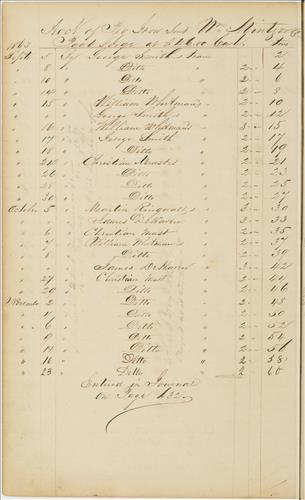 Stock of Pig Iron Wm
1863 at $26.00 Tons
Septr 5 By George Smiths Team 2
" 8 " Ditto " 2 - 4
" 10 " Ditto " 2 - 6
" 14 " Ditto " 2 - 8
" 15 " William Whitman's " 2 - 10
" " " George Smiths " 2 - 12
" 16 " William Whitmans " 3 - 15
" 17 " George Smith " 2 - 17
" 18 " Ditto " 2 - 19
" 24 " Christian Masts " 2 - 21
" 26 " Ditto " 2 - 23
" 28 " Ditto " 2 - 25
" 30 " Ditto " 2 - 27
October 5 " Martin
" " " James
" 6 " Christian Mast " 2 - 35
" 7 " William Whitmans " 2 - 37
" 8 " Ditto " 2 - 39
" " " James " 3 - 42
" 27 " Christian Mast " 2 - 44
" 29 " Ditto " 2 - 46
November 2 " Ditto " 2 - 48
" 4 " Ditto " 2 - 50
" 6 " Ditto " 2 - 52
" 9 " Ditto " 2 - 54
" 14 " Ditto " 2 - 56
" 16 " Ditto " 2 - 58
" 23 " Ditto " 2 60
Entered in Journal
on Page 132